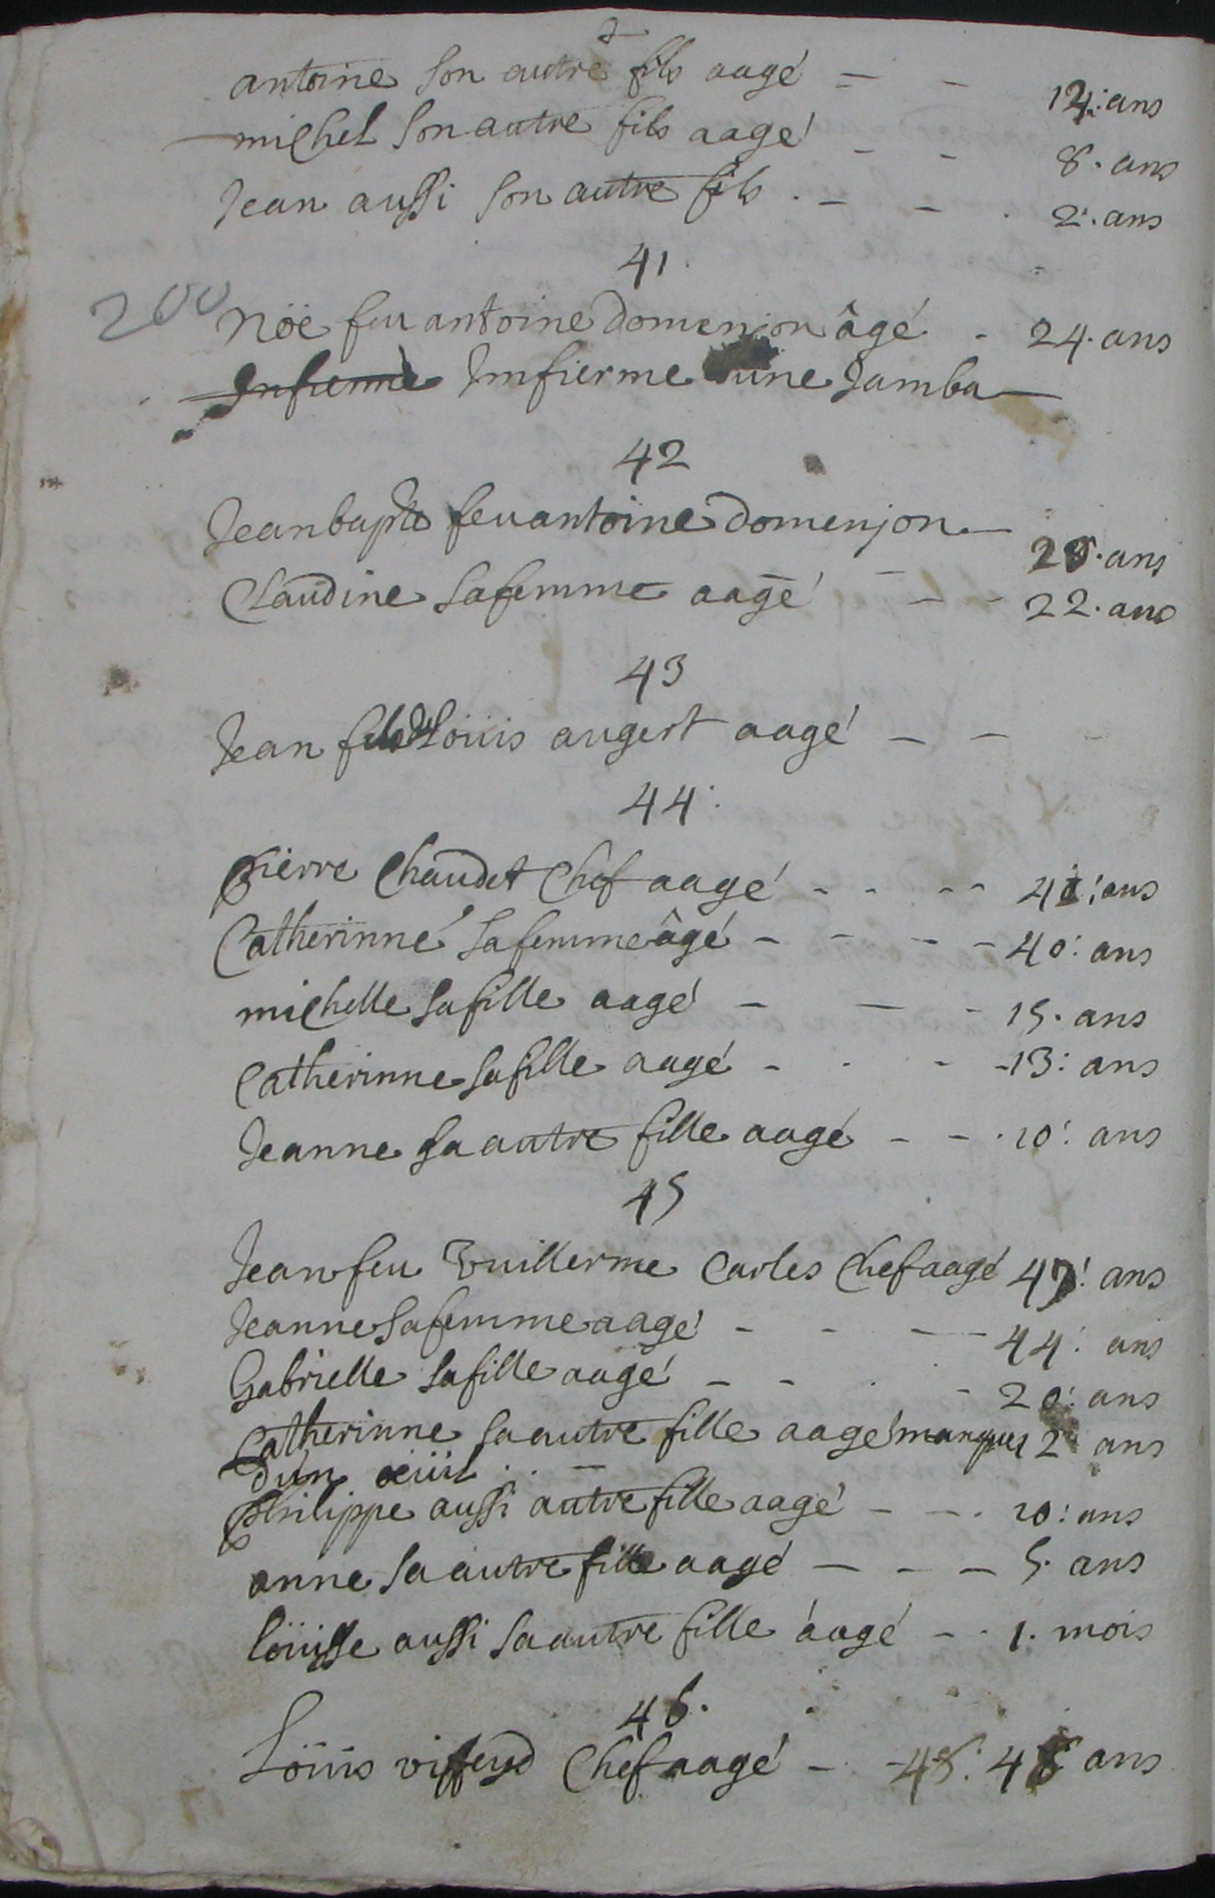 antoine son autre fils aagé - - 12: ans
michel son autre fils aagé - - 8. ans
Jean aussi son autre fils . - - . 2. ans
41
200
Nöe feu antoine domenjon âgé . 24. ans
Imfierme d'une Jamba
42
Jean bapte feu antoine domenjon - 28. ans
Claudine sa femme aagé - - 22. ans
43
Jean fils de Loüis augert aagé - -
44
pierre Chaudet Chef aagé - - - - 41: ans
Catherinné sa femme âgé - - - - 40: ans
michelle sa fille aagé - - - 15. ans
Catherinne sa fille aagé - . - - 13: ans
Jeanne sa autre fille aagé - - . 10: ans
45
Jean feu Vuillerme Carles Chef aagé 47: ans
Jeanne sa femme aagé - - - - 44: ans
Gabrielle sa fille aagé - - . - 20: ans
Catherinne sa autre fille aagé manque 12 ans
d'un oeüil . . -
philippe aussi autre fille aagé - - . 10: ans
anne sa autre fille aagé - - - 5. ans
loüisse aussi sa autre fille áagé - . 1. mois
46.
Loüis viffend Chef aagé - - 48: 48 ans